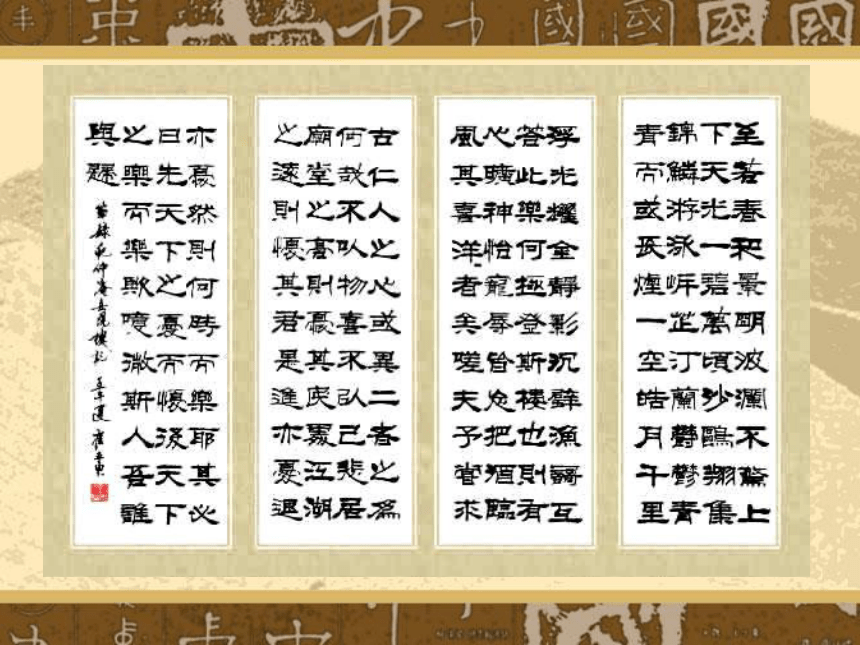 至若春和景明波瀾不驚上
下天光一碧萬頃沙鷗翔集
錦鱗游泳岸芷汀蘭鬱鬱青
青而或長煙一空皓月千里
浮光耀金靜影沉璧漁謌互
答此樂何極登斯樓也則有
心曠神怡寵辱皆忘把酒臨
風其喜洋〻者矣嗟夫予嘗求
古仁人之心或異二者之為
何哉不以物喜不以己悲居
廟堂之高則憂其民處江湖
之遠則憂其君是進亦憂退
亦憂然則何時而樂耶其必
曰先天下之憂而憂後天下
之樂而樂歟噫微斯人吾誰
與歸
節錄范仲淹岳陽樓記